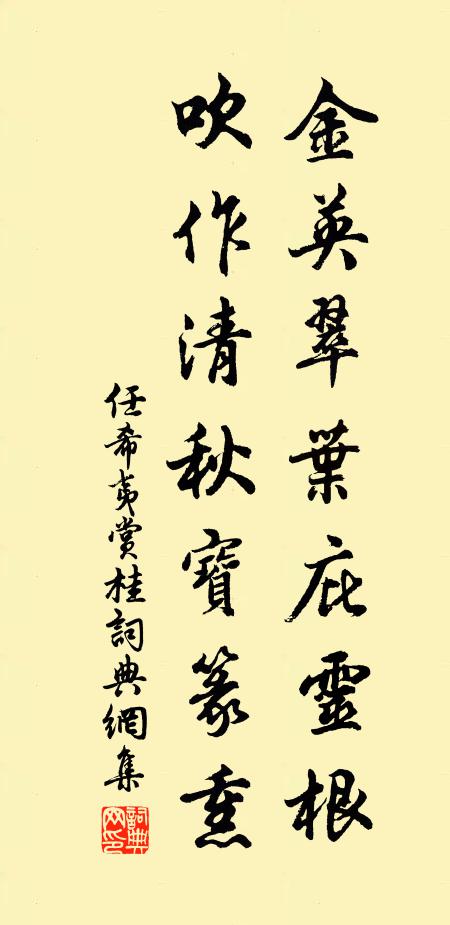 金英翠葉庇靈根
吹作清秋寶篆熏
任希夷賞桂詞典網集
詞典網印